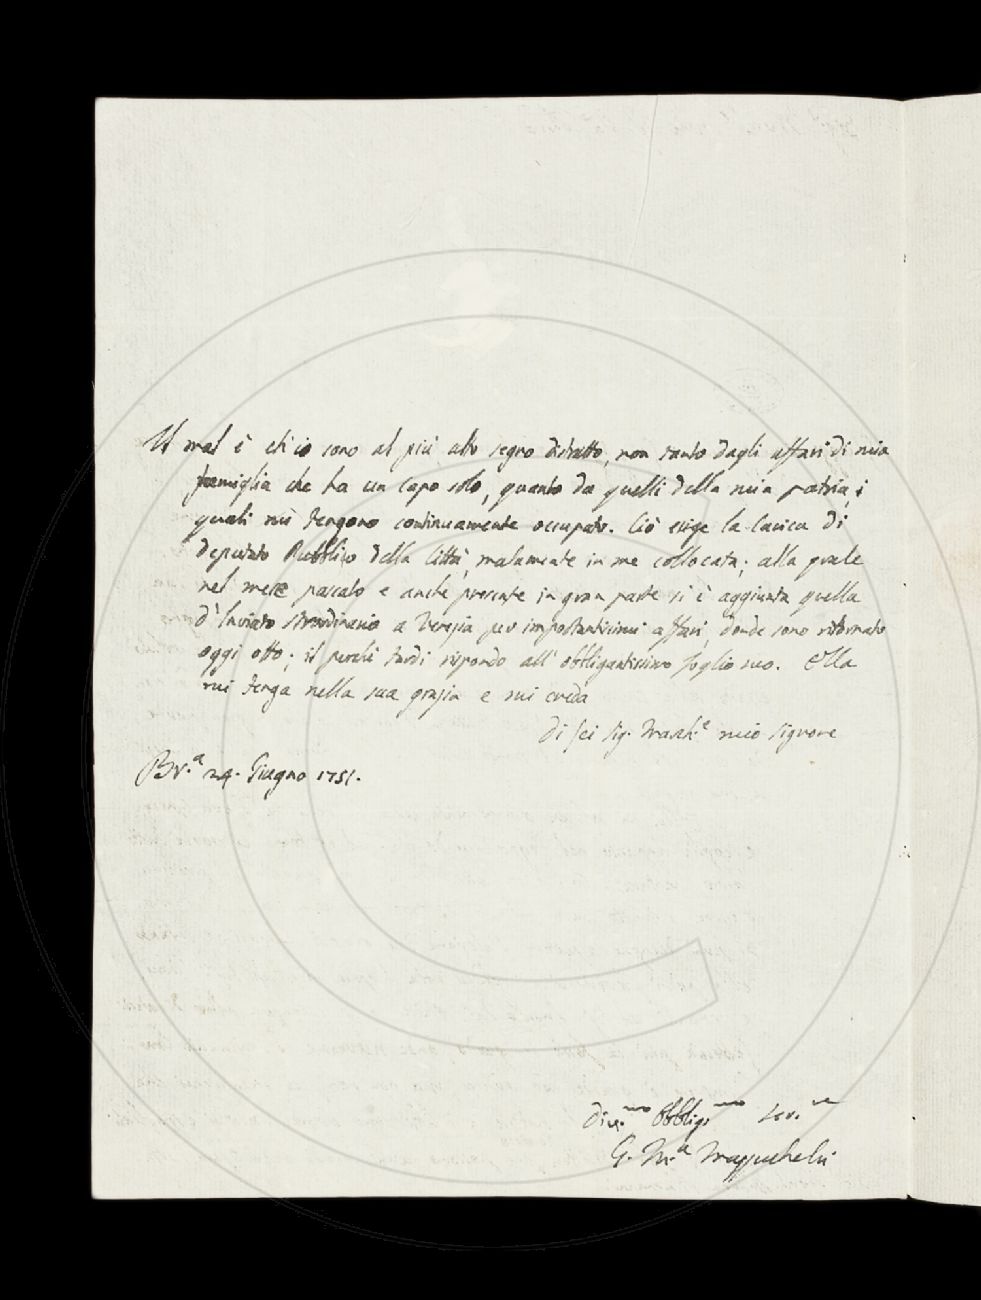 Il mal è ch'io sono al più alto segno distratto, non tanto dagli affari di mia
famiglia che ha un capo solo, quanto da quelli della mia patria, i
quali mi tengono continuamente occupato. Ciò esige la carica di
deputato Pubblico della Città, malamente in me collocata; alla quale
nel mese passato e anche presente in gran parte si è aggiunta quella
d'Inviato straordinario a Venezia per importantissimi affari, donde sono ritornato
oggi otto; il perchè tardi rispondo all' obbligantissimo foglio suo. Ella
mi tenga nella sua grazia e mi creda
Di Lei Sig. March.e mio Signore
Br.a 24. Giugno 1751.
Div.mo Obblig.mo Ser.re
G. M.a Mazzuchelli